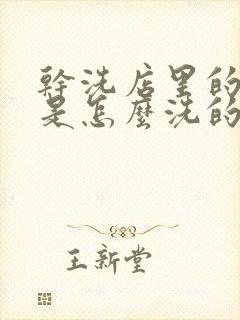 幹洗店里的
是怎麼洗的
王新堂